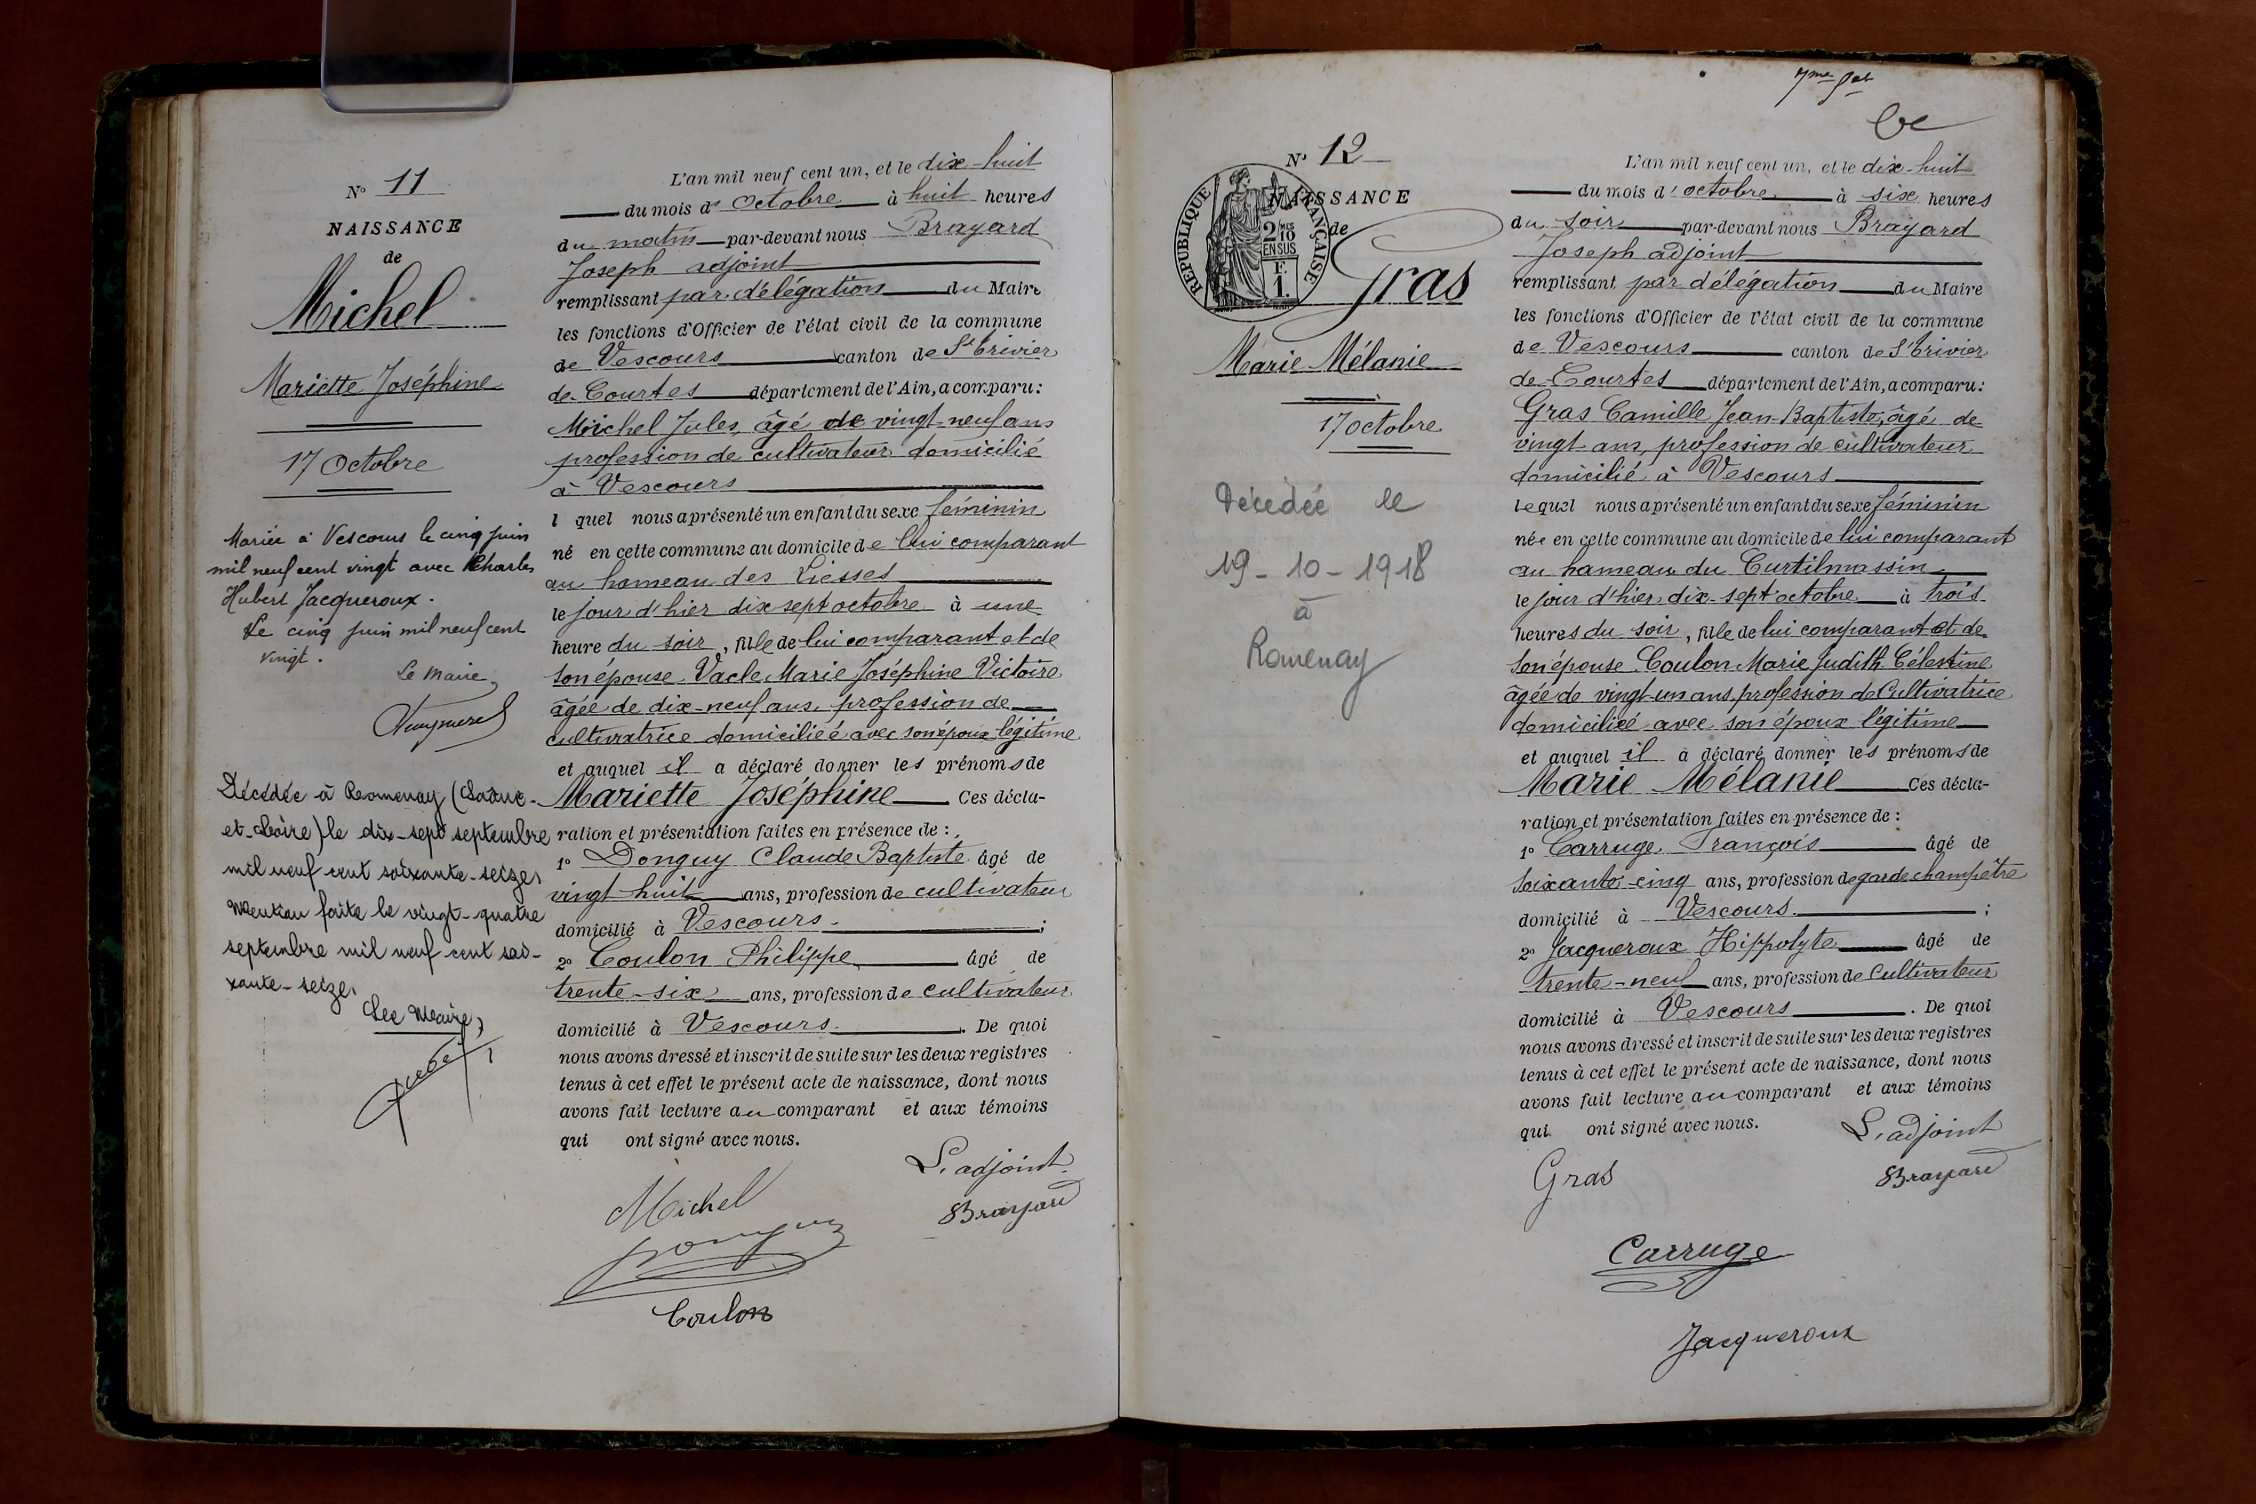 N° 11
NAISSANCE
de
Michel
Mariette Joséphine
17 Octobre
Mariée à Vescours le cinq juin
mil neuf cent vingt avec Charles
Hubert Jacqueroux.
Le cinq juin mil neuf cent
vingt.
Le Maire,
Décédée à Romenay (Saône-
et-Loire) le dix-sept septembre
mil neuf cent soixante-seize,
Mention faite le vingt-quatre
septembre mil neuf cent soi-
xante-seize,
Le Maire,
L'an mil neuf cent un, et le dix-huit
du mois d'octobre à huit heures
du matin par-devant nous Brayard
Joseph adjoint
remplissant par délégation du Maire
les fonctions d'Officier de l'état civil de la commune
de Vescours canton de St Trivier
de Courtes département de l'Ain, a comparu:
Michel Jules, âgé de vingt-neuf ans
profession de cultivateur domicilié
à Vescours
l quel nous a présenté un enfant du sexe féminin
né en cette commune au domicile de lui comparant
au hameau des Liesses
le jour d'hier dix sept octobre à une
heure du soir, fille de lui comparant et de
son épouse Vacle Marie Joséphine Victoire
âgée de dix-neuf ans, profession de
cultivatrice domiciliée avec son époux légitime
et auquel il a déclaré donner les prénoms de
Mariette Joséphine Ces décla-
ration et présentation faites en présence de:
1° Donguy Claude Baptiste âgé de
vingt huit ans, profession de cultivateur
domicilié à Vescours ;
2° Coulon Philippe âgé de
trente-six ans, profession de cultivateur
domicilié à Vescours. De quoi
nous avons dressé et inscrit de suite sur les deux registres
tenus à cet effet le présent acte de naissance, dont nous
avons fait lecture au comparant et aux témoins
qui ont signé avec nous.
L'adjoint
Michel
Brayard
Donguy
Coulon
7me
N° 12
NAISSANCE
de
RÉPUBLIQUE FRANÇAISE
2 MES
10
EN SUS
F.
1.
Gras
Marie Mélanie
17 octobre
Décédée le
19-10-1918
à
Romenay
L'an mil neuf cent un, et le dix-huit
du mois d'octobre à six heures
du soir par-devant nous Brayard
Joseph adjoint
remplissant par délégation du Maire
les fonctions d'Officier de l'état civil de la commune
de Vescours canton de St Trivier
de Courtes département de l'Ain, a comparu:
Gras Camille Jean-Baptiste, âgé de
vingt ans, profession de cultivateur
domicilié à Vescours
lequel nous a présenté un enfant du sexe féminin
née en cette commune au domicile de lui comparant
au hameau du Curtilmassin
le jour d'hier dix-sept octobre à trois
heures du soir, fille de lui comparant et de
son épouse Coulon Marie Judith Célestine
âgée de vingt-un ans, profession de Cultivatrice
domiciliée avec son époux légitime
et auquel il a déclaré donner les prénoms de
Marie Mélanie Ces décla-
ration et présentation faites en présence de:
1° Carruge François âgé de
soixante-cinq ans, profession de garde champêtre
domicilié à Vescours ;
2° Jacqueroux Hippolyte âgé de
trente-neuf ans, profession de Cultivateur
domicilié à Vescours. De quoi
nous avons dressé et inscrit de suite sur les deux registres
tenus à cet effet le présent acte de naissance, dont nous
avons fait lecture au comparant et aux témoins
qui ont signé avec nous.
L'adjoint
Gras
Brayard
Carruge
Jacqueroux